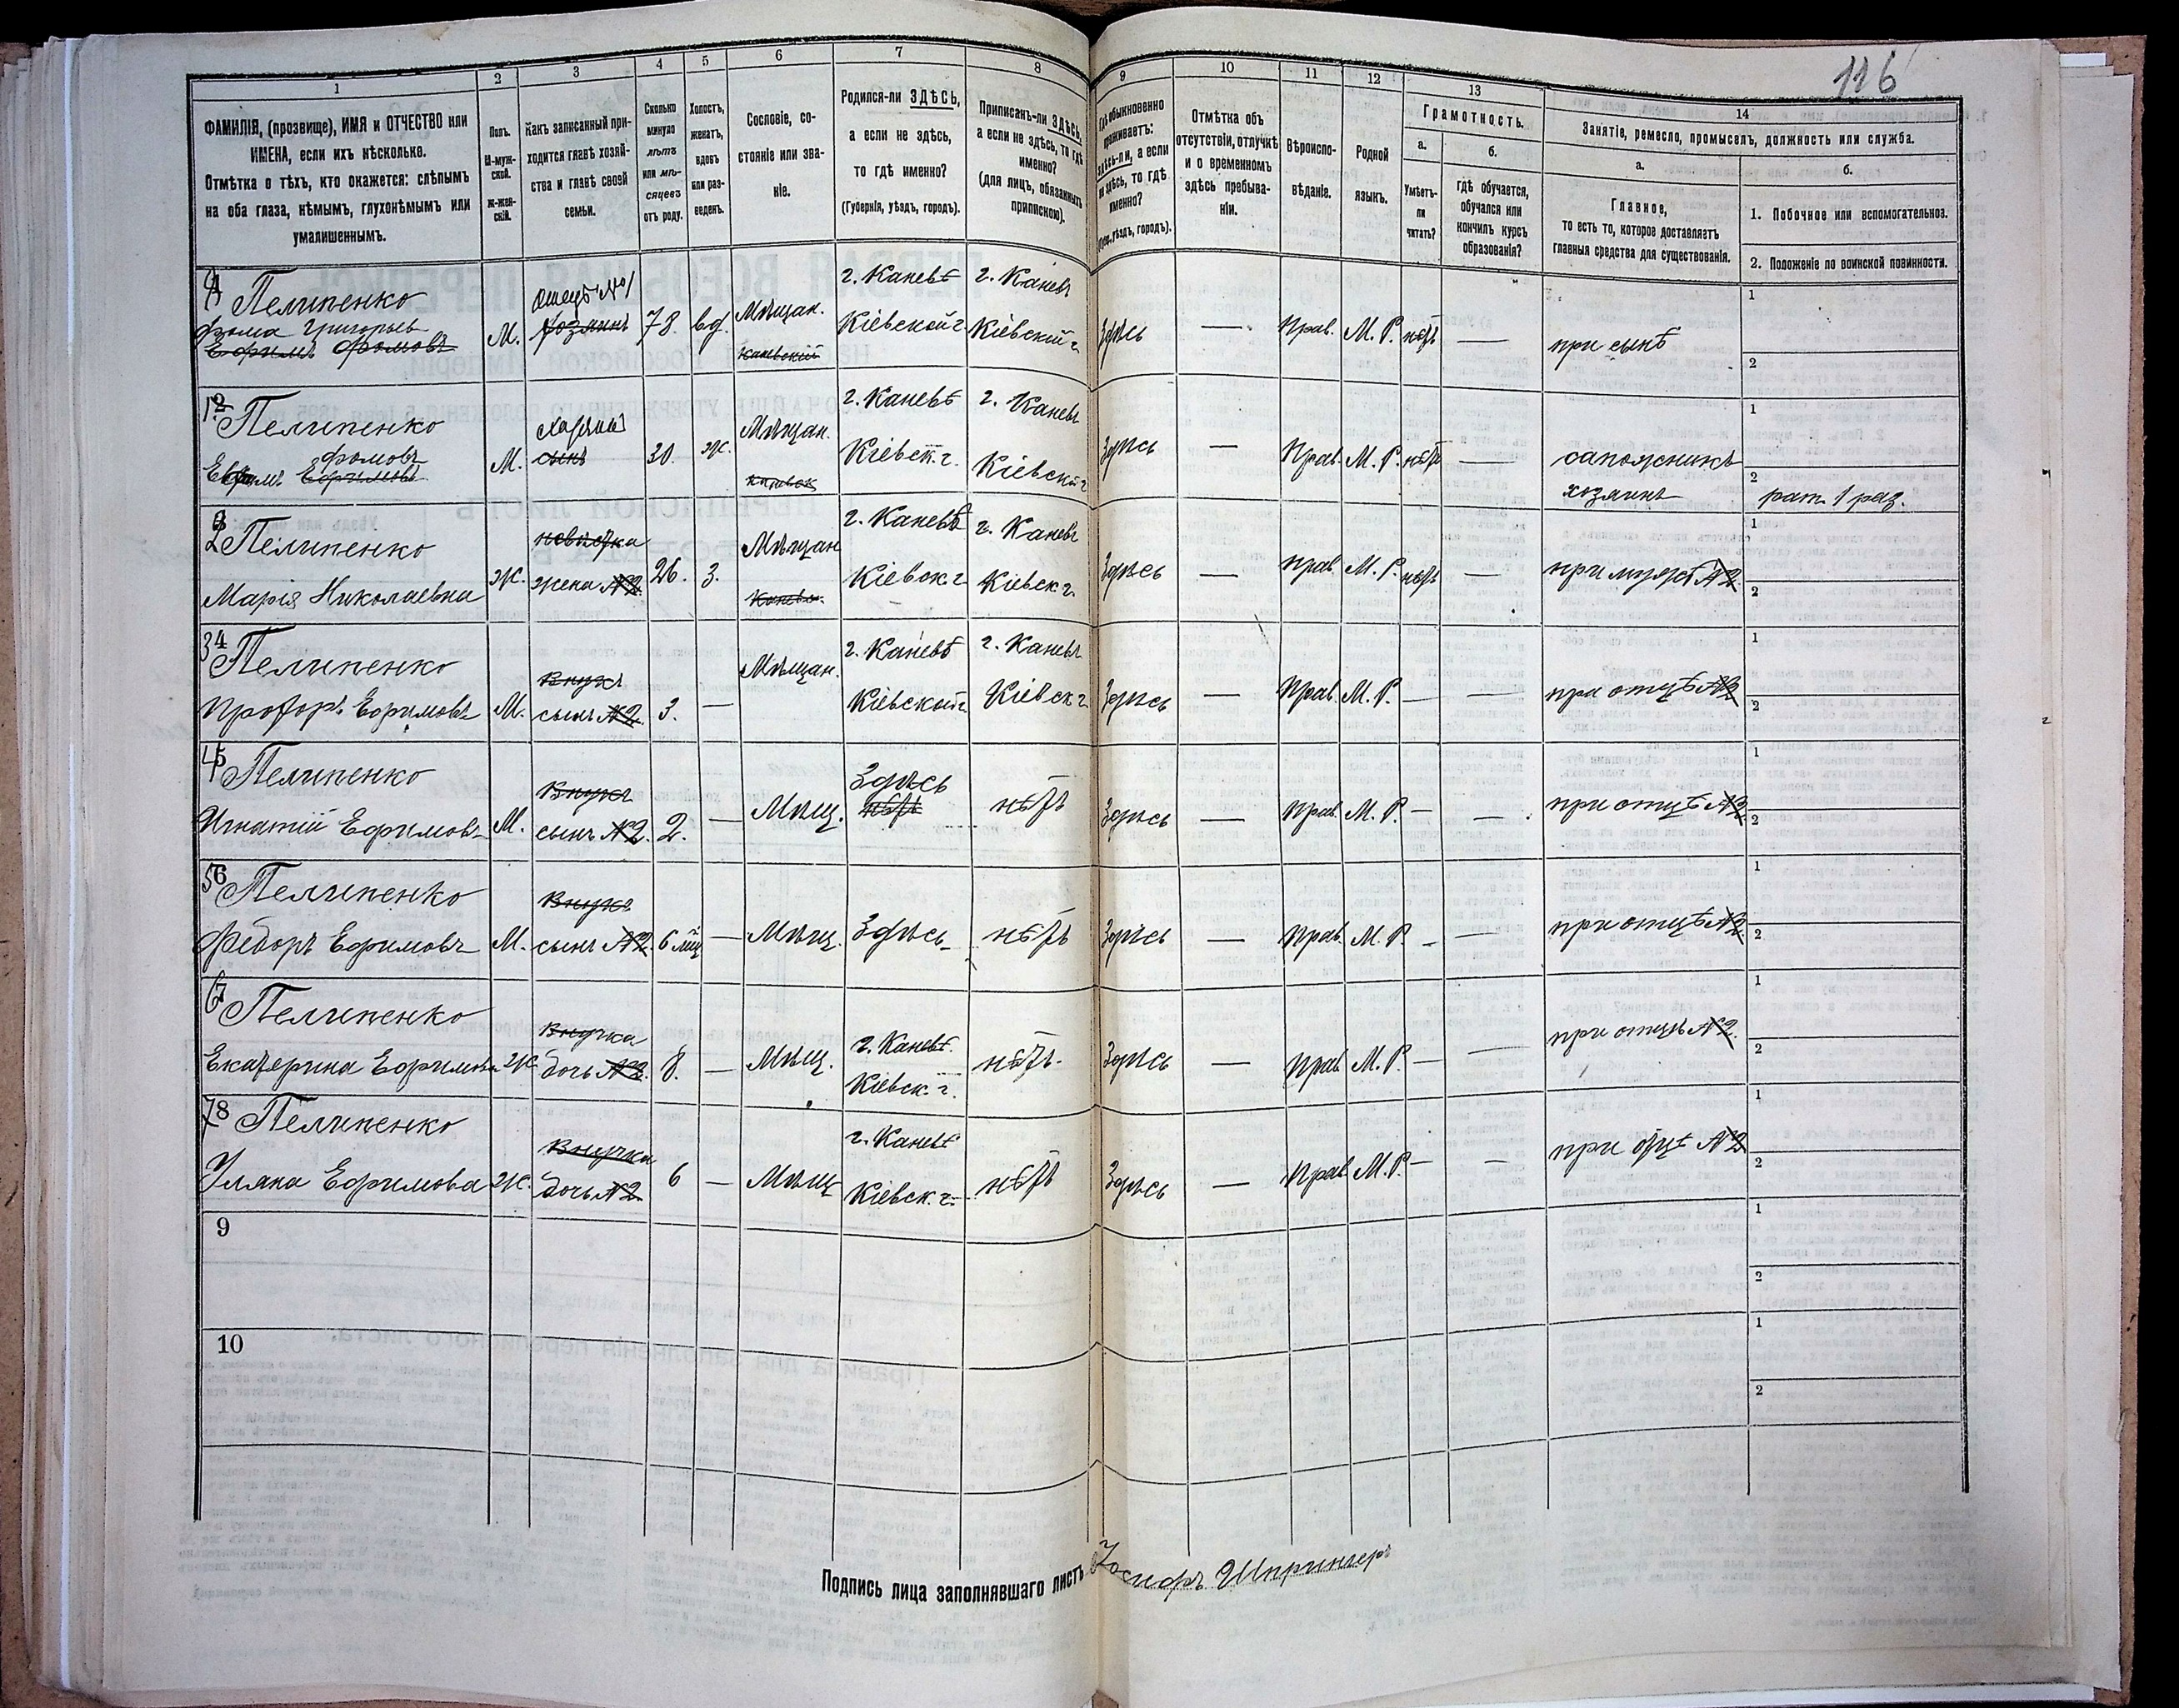 116
1 2 3 4 5 6 7 8 9 10 11 12 13 14
ФАМИЛІЯ, (прозвище), ИМЯ и ОТЧЕСТВО или
ИМЕНА, если ихъ нѣсколько.
Отмѣтка о тѣхъ, кто окажется: слѣпымъ
на оба глаза, нѣмымъ, глухонѣмымъ или
умалишеннымъ.
Полъ.
М-муж-
ской.
Ж-жен-
скій.
Какъ записанный при-
ходится главѣ хозяй-
ства и главѣ своей
семьи.
Сколько
минуло
лѣтъ
или мѣ-
сяцевъ
отъ роду.
Холостъ,
женатъ,
вдовъ
или раз-
веденъ.
Сословіе, со-
стояніе или зва-
ніе.
Родился-ли ЗДѢСЬ,
а если не здѣсь,
то гдѣ именно?
(Губернія, уѣздъ, городъ).
Приписанъ-ли ЗДѢСЬ,
а если не здѣсь, то гдѣ
именно?
(для лицъ, обязанныхъ
припискою).
Гдѣ обыкновенно
проживаетъ:
здѣсь-ли, а если
не здѣсь, то гдѣ
именно?
(Губ., уѣздъ, городъ).
Отмѣтка объ
отсутствіи, отлучкѣ
и о временномъ
здѣсь пребыва-
ніи.
Вѣроиспо-
вѣданіе.
Родной
языкъ.
Грамотность.
а.
Умѣетъ-
ли
читать?
б.
гдѣ обучается,
обучался или
кончилъ курсъ
образованія?
Занятіе, ремесло, промыселъ, должность или служба.
а.
Главное,
то есть то, которое доставляетъ
главныя средства для существованія.
б.
1. Побочное или вспомогательное.
2. Положеніе по воинской повинности.
Пелипенко
Фома Григорьев
Ефимъ Фомовъ
М.
Отецъ №1
хозяинъ
78.
вд.
Мѣщан.
каневскій
г. Каневѣ
Кіевской г.
г. Каневъ
Кіевской г.
Здѣсь
—
Прав.
М. Р.
нѣтъ
—
при сынѣ
1
2
12 Пелипенко
Ефимъ Фомовъ
Ефимовъ
М.
хозяинъ
сынъ
30.
ж.
Мѣщан.
г. Каневѣ
Кіевск. г.
г. Каневъ
Кіевской г.
Здѣсь
—
Прав.
М. Р.
нѣтъ
—
сапожникъ
хозяинъ
1
2
рат. 1 раз.
23 Пелипенко
Марія Николаевна
Ж.
невѣстка
жена №2
26.
З.
Мѣщан.
г. Каневѣ
Кіевск. г.
г. Каневъ
Кіевск. г.
Здѣсь
—
Прав.
М. Р.
нѣтъ
—
при мужѣ №2
1
2
34 Пелипенко
Прохоръ Ефимовъ
М.
внукъ
сынъ №2
3.
—
Мѣщан.
г. Каневѣ
Кіевской г.
г. Каневъ
Кіевск. г.
Здѣсь
—
Прав.
М. Р.
—
—
при отцѣ №2
1
2
45 Пелипенко
Игнатій Ефимовъ
М.
внукъ
сынъ №2.
2.
—
Мѣщ.
Здѣсь
нѣтъ
нѣтъ
Здѣсь
—
Прав.
М. Р.
—
—
при отцѣ №2
1
2
56 Пелипенко
Федоръ Ефимовъ
М.
внукъ
сынъ №2
6 мѣц
—
Мѣщ.
Здѣсь
нѣтъ
Здѣсь
—
Прав.
М. Р.
—
—
при отцѣ №2
1
2
67 Пелипенко
Екатерина Ефимова
Ж.
внучка
дочь №2.
8.
—
Мѣщ.
г. Каневѣ
Кіевск. г.
нѣтъ
Здѣсь
—
Прав.
М. Р.
—
—
при отцѣ №2.
1
2
78 Пелипенко
Уляна Ефимова
Ж.
внучка
дочь №2
6
—
Мѣщ.
г. Каневѣ
Кіевск. г.
нѣтъ
Здѣсь
—
Прав.
М. Р.
—
—
при отцѣ №2
1
2
9
1
2
10
1
2
Подпись лица заполнявшаго листъ Іосифъ Шпрингеръ